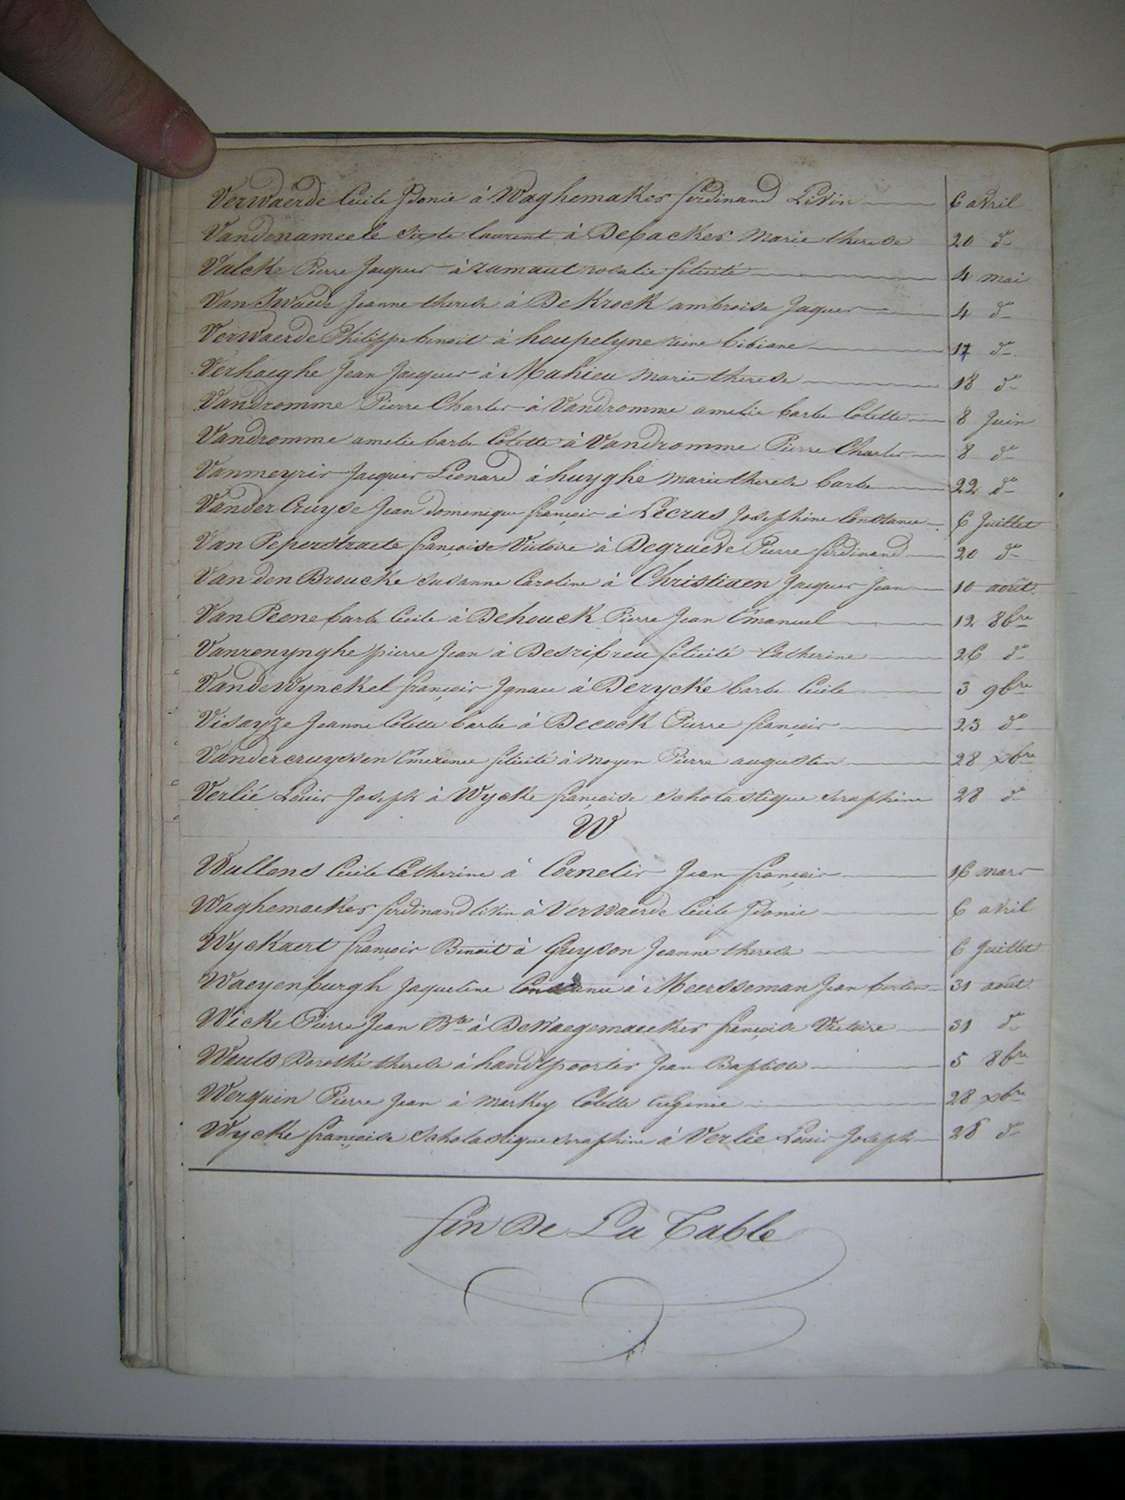 Verwaerde Cécile Idonie à Waghemakes ferdinand Livin 6 avril
Vandenameele Sixte Laurent à Debackes marie therese 20 d°
Valcke Pierre Jacques à ramaut rosalie félicité 4 mai
Van Jeanne therese à De Krock ambroise Jaques 4 d°
Verwaerde Philippe benoit à houpelyne reine bibiane 17 d°
Verhaeghe Jean Jacques à Mahieu marie therese 18 d°
Vandromme Pierre Charles à Vandromme amelie barbe Colette 8 Juin
Vandromme amelie barbe Colette à Vandromme Pierre Charles 8 d°
Vanmeyris Jacques Léonard à huyghe marie therese barbe 22 d°
Vander Cruyse Jean domenique françois à Lecras Josephine Constance 6 Juillet
Van Peperstraete françoise Victoire à Degraeve Pierre ferdinand 20 d°
Van den Broucke Susanne Caroline à Christiaen Jacques Jean 10 août
Van Peene barbe Cécile à Dehouck Pierre Jean Emanuel 12 8bre
Vanrenynghe pierre Jean à félicité Catherine 26 d°
VandeWynckel françois Ignace à Derycke barbe Cécile 3 9bre
Jeanne Colette barbe à Decock Pierre françois 23 d°
Vandercruyssen félicité à moyen Pierre augustin 28 xbre
Verlié Louis Joseph à Wycke françoise Scholastique Seraphine 28 d°
W
Wullens Cécile Catherine à Cornelis Jean françois 16 mars
Waghemackes ferdinand livin à Verwaerde Cécile Idonie 6 avril
Wyckaert françois Benoit à Gryson Jeanne therese 6 Juillet
Waeyenburgh Jaqueline Constance à Meersseman Jean 31 août
Wicke Pierre Jean Bte à Dewaegemaeckes françoise Victoire 31 d°
Wauls Dorothé therese à handtpoorter Jean Baptiste 5 8bre
Werquin Pierre Jean à markey Colette Eugénie 28 xbre
Wycke françoise Scholastique Seraphine à Verlie Louis Joseph 28 d°
fin De La Table